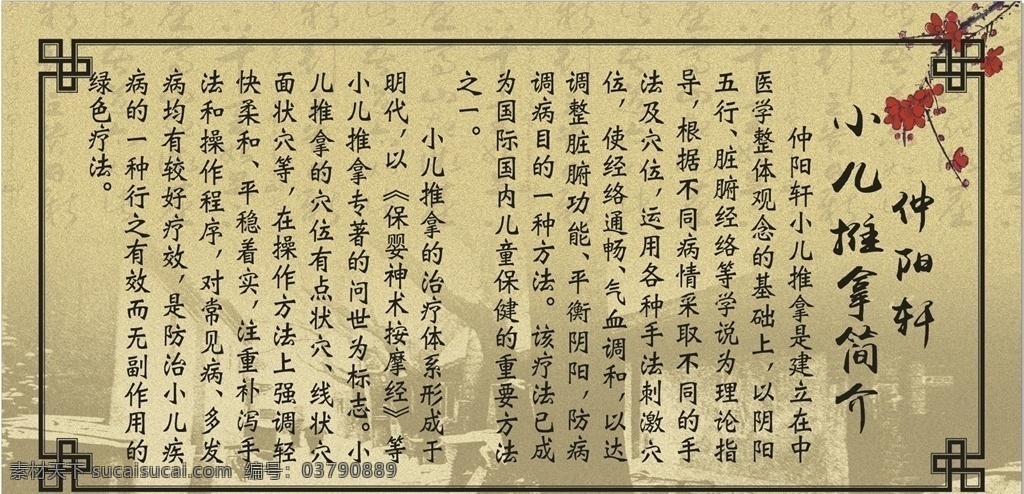 仲阳轩
小儿推拿简介
仲阳轩小儿推拿是建立在中
医学整体观念的基础上，以阴阳
五行、脏腑经络等学说为理论指
导，根据不同病情采取不同的手
法及穴位，运用各种手法刺激穴
位，使经络通畅、气血调和，以达
调整脏腑功能、平衡阴阳，防病
调病目的一种方法。该疗法已成
为国际国内儿童保健的重要方法
之一。
小儿推拿的治疗体系形成于
明代，以《保婴神术按摩经》等
小儿推拿专著的问世为标志。小
儿推拿的穴位有点状穴、线状穴
面状穴等，在操作方法上强调轻
快柔和、平稳着实，注重补泻手
法和操作程序，对常见病、多发
病均有较好疗效，是防治小儿疾
病的一种行之有效而无副作用的
绿色疗法。
素材天下 sucaisucai.com 编号：03790889